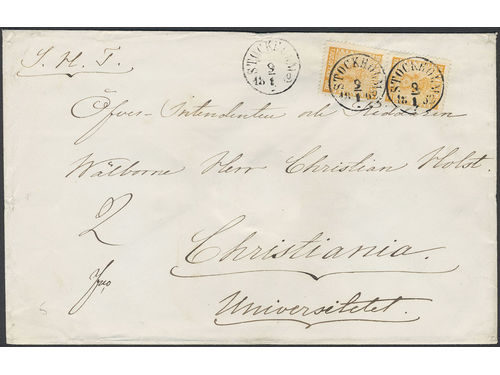 S. H. T.
STOCKHOLM
9
1
STOCKHOLM
9
18 1 62
STOCKHOLM
9
18 1 62
Öfvers-Intendenten och Riddaren
Wälborne Herr Christian Holst.
2
Christiania.
Universitetet.